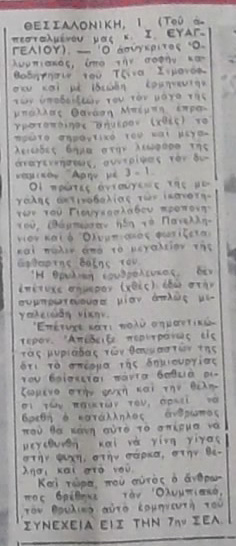 ΘΕΣΣΑΛΟΝΙΚΗ, 1. (Τοῦ ἀ-
πεσταλμένου μας κ. Σ. ΕΥΑΓ-
ΓΕΛΙΟΥ).— Ὁ ἀσύγκριτος Ὀ-
λυμπιακός, ὑπὸ τὴν σοφὴν κα-
θοδήγησιν τοῦ Τζίνα Σιμανόφ-
σκυ καὶ μὲ ἰδεώδη ἑρμηνευτὴν
τῶν ὑποδείξεών του τὸν μάγο τῆς
μπάλλας Θανάση Μπέμπη, ἐπρα-
γματοποίησε σήμερον (χθὲς) τὸ
πρῶτο σημαντικό του καὶ μεγα-
λειῶδες βῆμα στὴν λεωφόρο τῆς
ἀναγεννήσεως, συντρίψας τὸν δυ-
ναμικὸν Ἄρην μὲ 3 - 1.
Οἱ πρῶτες ἀνταύγειες τῆς με-
γάλης ἀκτινοβολίας τῶν ἱκανοτή-
των τοῦ Γιουγκοσλάβου προπονη-
τοῦ, ἐθάμπωσαν ἤδη τὸ Πανελλή-
νιον καὶ ὁ Ὀλυμπιακὸς φωτίζεται
καὶ πάλιν ἀπὸ τὸ μεγαλεῖον τῆς
ἄφθαρτης δόξης του.
Ἡ θρυλικὴ ἐρυθρόλευκος, δὲν
ἐπέτυχε σήμερον (χθὲς) ἐδῶ στὴν
συμπρωτεύουσα μίαν ἁπλῶς με-
γαλειώδη νίκην.
Ἐπέτυχε κάτι πολὺ σημαντικώ-
τερον. Ἀπέδειξε περιτράνως εἰς
τὰς μυριάδας τῶν θαυμαστῶν της
ὅτι τὸ σπέρμα τῆς δημιουργίας
του βρίσκεται πάντα βαθειὰ ρι-
ζωμένο στὴν ψυχὴ καὶ τὴν θέλη-
σι τῶν παικτῶν του, ἀρκεῖ νὰ
βρεθῆ ὁ κατάλληλος ἄνθρωπος
ποὺ θὰ κάνη αὐτὸ τὸ σπέρμα νὰ
μεγεθυνθῆ καὶ νὰ γίνη γίγας
στὴν ψυχή, στὴν σάρκα, στὴν θέ-
λησι, καὶ στὸ νοῦ.
Καὶ τώρα, ποὺ αὐτὸς ὁ ἄνθρω-
πος βρέθηκε τὸν Ὀλυμπιακό,
τὸν θρυλικὸ αὐτὸ ἑρμηνευτὴ τοῦ
ΣΥΝΕΧΕΙΑ ΕΙΣ ΤΗΝ 7ην ΣΕΛ.